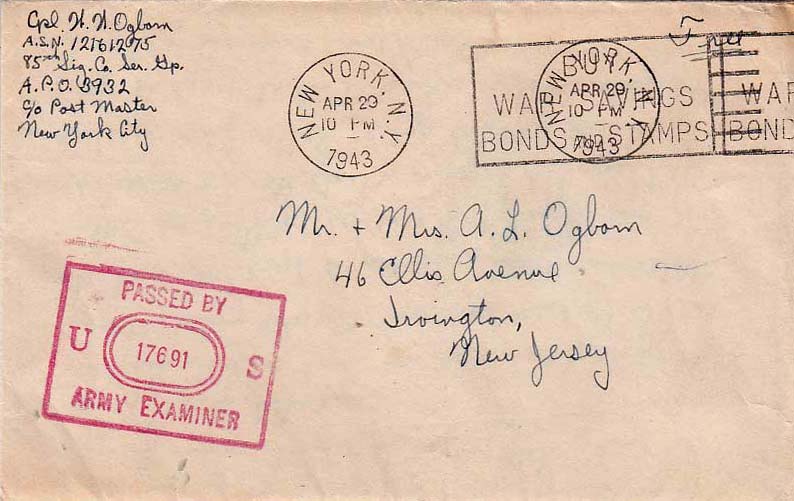 Cpl. W. W. Ogborn
A.S.N. 12161275
85th Sig. Co. Ser. Gp.
A.P.O. 3932
c/o Post Master
New York City
NEW YORK, N.Y.
APR 29
10 PM
1943
Free
NEW YORK, N.Y.
APR 29
10 PM
1943
BUY
WAR SAVINGS
BONDS AND STAMPS
WAR
BOND
Mr. + Mrs. A. L. Ogborn
46 Ellis Avenue
Irvington,
New Jersey
PASSED BY
U 17691 S
ARMY EXAMINER